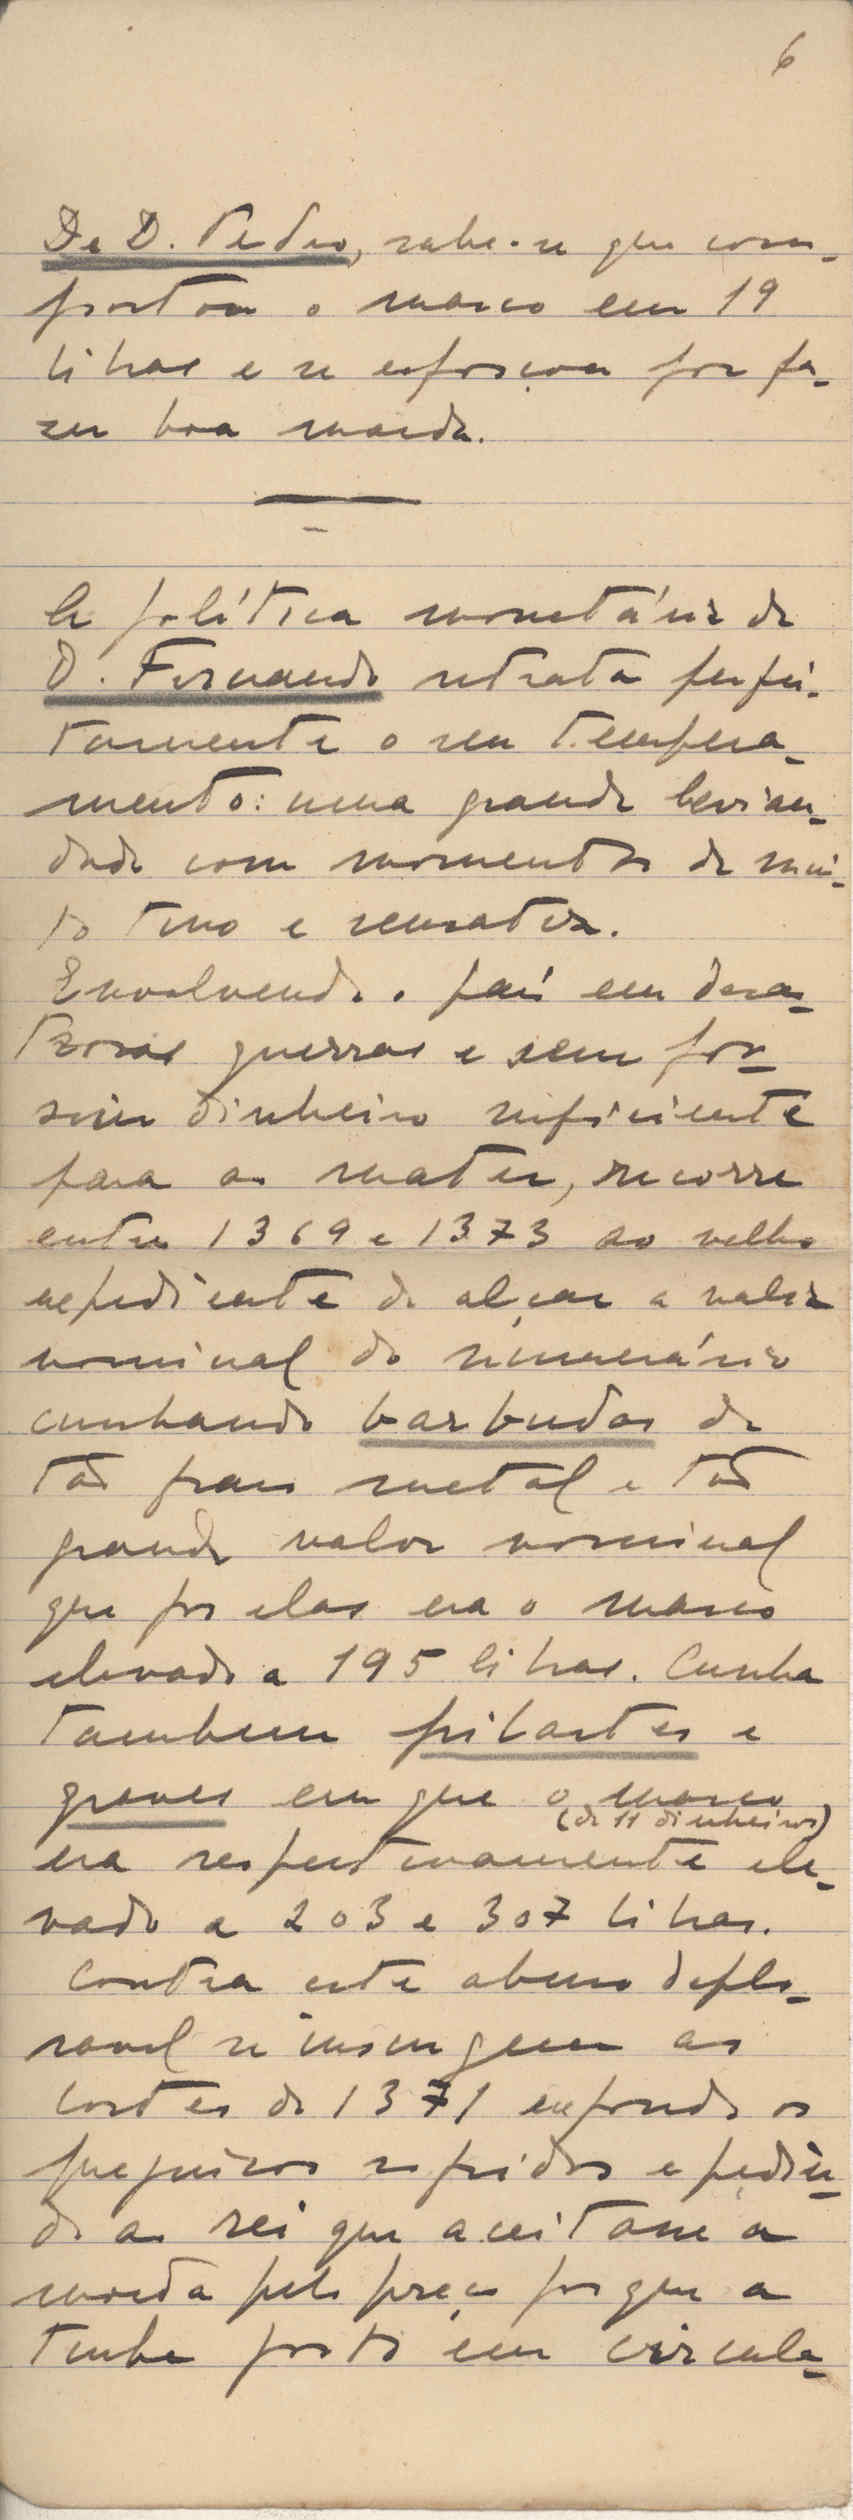 6
De D. Pedro, sabe-se que com-
portou o marco em 19
libras e se esforçou por fa-
zer boa moeda.
A política monetária de
D. Fernando retrata perfei-
tamente o seu tempera-
mento: uma grande levian-
dade com momentos de mui-
to tino e sensatez.
Envolvendo o país em desas-
trosas guerras e sem pos-
suir dinheiro suficiente
para as manter, recorre
entre 1369 e 1373 ao velho
expediente de alçar o valor
nominal do numerário
cunhando barbudas de
tão fraco metal e tão
grande valor nominal
que por elas era o marco
elevado a 195 libras. Cunha
tambem pilartes e
graves em que o marco
(de 11 dinheiros)
era respectivamente ele-
vado a 203 e 307 libras.
Contra este abuso deplo-
ravel se insurgem as
Cortes de 1371 expondo os
prejuizos sofridos e pedin-
do ao rei que aceitasse a
moeda pelo preço por que a
tinha posto em circula-